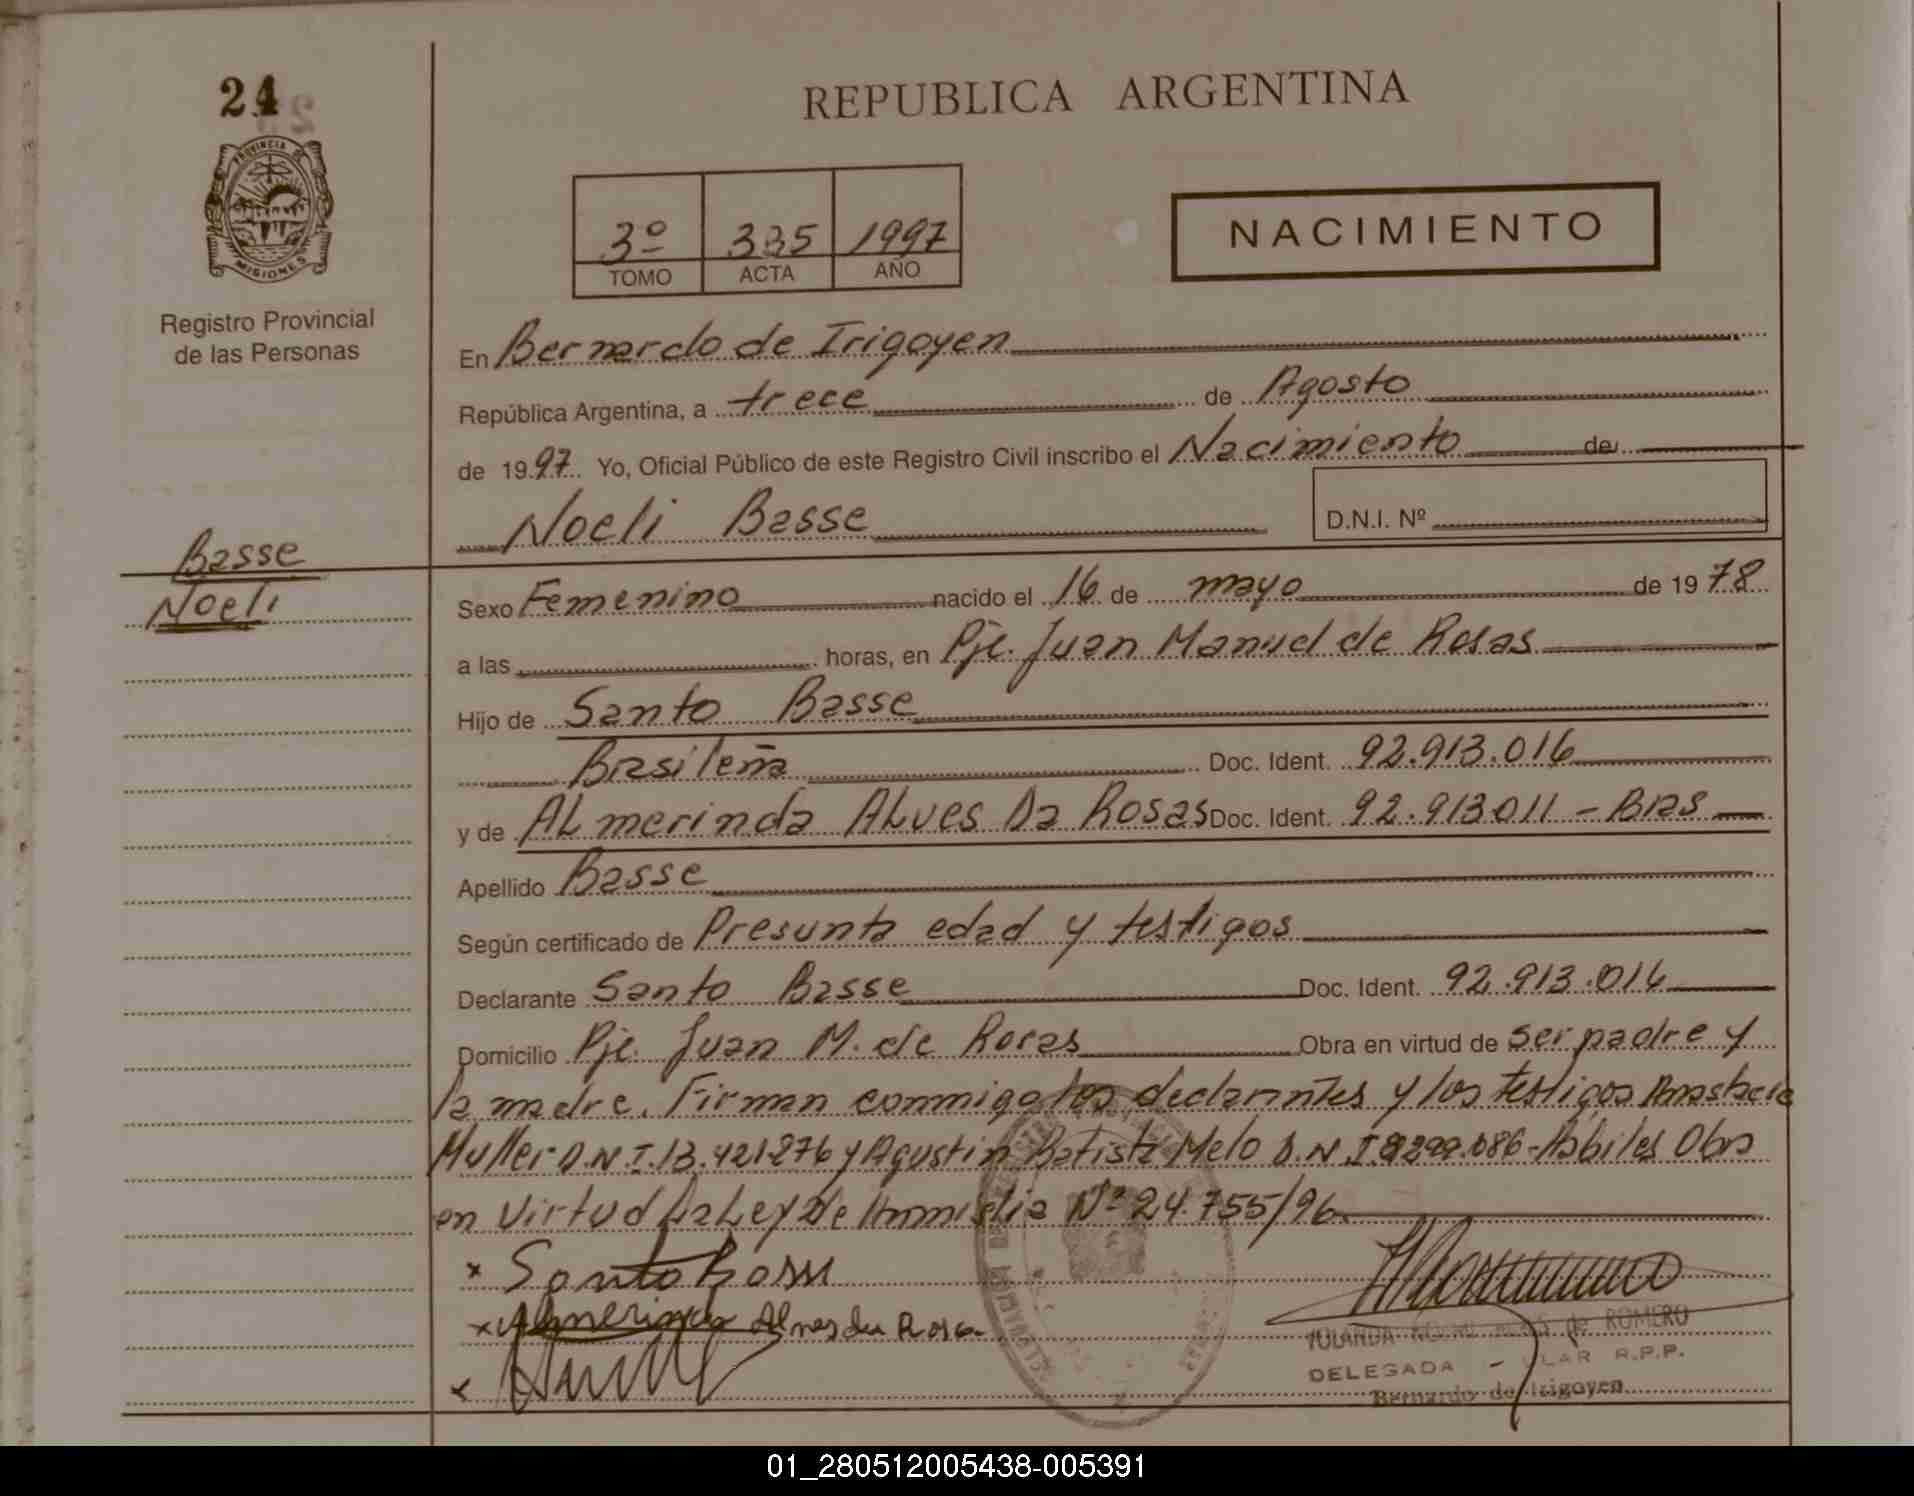 24
PROVINCIA DE
MISIONES
Registro Provincial
de las Personas
REPUBLICA ARGENTINA
3º 335 1997
TOMO ACTA AÑO
NACIMIENTO
En Bernardo de Irigoyen
República Argentina, a trece de Agosto
de 1997 Yo, Oficial Público de este Registro Civil inscribo el Nacimiento de
Noeli Basse
D.N.I. Nº
Basse
Noeli
Sexo Femenino nacido el 16 de mayo de 1978
a las horas, en Pje. Juan Manuel de Rosas
Hijo de Santo Basse
Brasileña Doc. Ident. 92.913.016
y de ALmerinda ALves Da Rosas Doc. Ident. 92.913011 - Bras
Apellido Basse
Según certificado de Presunta edad y testigos
Declarante Santo Basse Doc. Ident. 92.913.016
Domicilio Pje. Juan M. de Rosas Obra en virtud de ser padre y
la madre. Firman conmigo los declarantes y los testigos Anastacia
Muller D.N.I. 13.421276 y Agustin Batista Melo D.N.I. Habiles Obra
en Virtud La Ley de Amnistia Nº 24.755/96
x Santo Basse
x Almerinda Alves da Rosa
x
YOLANDA de ROMERO
DELEGADA R.P.P.
Bernardo de Irigoyen
01_280512005438-005391